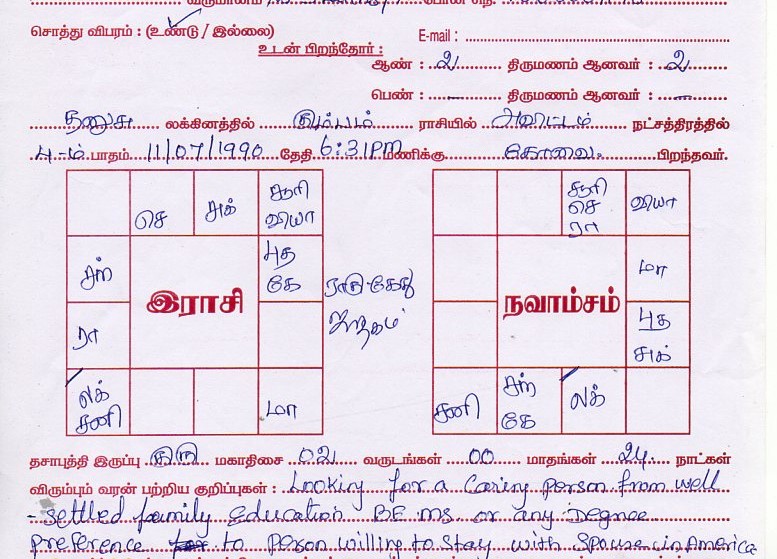 வருமானம் : போன் எண்.
சொத்து விபரம் : (உண்டு / இல்லை) E-mail :
உடன் பிறந்தோர் :
ஆண் : 2 திருமணம் ஆனவர் : 2
பெண் : - திருமணம் ஆனவர் : -
தனுசு லக்கினத்தில் கும்பம் ராசியில் அவிட்டம் நட்சத்திரத்தில்
4-ம் பாதம் 11/07/1990 தேதி 6:31PM மணிக்கு கோவை பிறந்தவர்.
செ சுக் சூரி வியா
சூரி செ ரா வியா
சந் புத கே
மா
இராசி
ராகு-கேது ஜாதகம்
நவாம்சம்
ரா
புத சுக்
லக் சனி மா
சனி சந் கே லக்
தசாபுத்தி இருப்பு குரு மகாதிசை 02 வருடங்கள் 00 மாதங்கள் 24 நாட்கள்
விரும்பும் வரன் பற்றிய குறிப்புகள் : Looking for a Caring person from well
- settled family Education BE MS or any Degree
preference to person willing to stay with Spouse in America